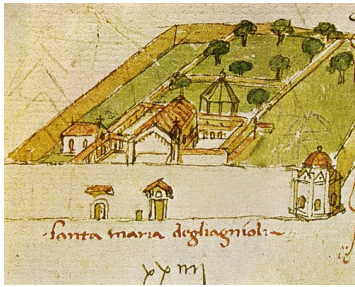 ·santa maria degliagnioli